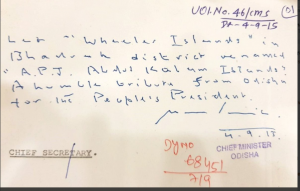 UOI.No.46/CMS
Dt-4-9-15
01
Let "Wheeler Islands" in
Bhadrak district renamed
"A.P.J. Abdul Kalam Islands".
A humble tribute from Odisha
for the People's President
4.9.15
CHIEF MINISTER
ODISHA
CHIEF SECRETARY.
68451
7/9